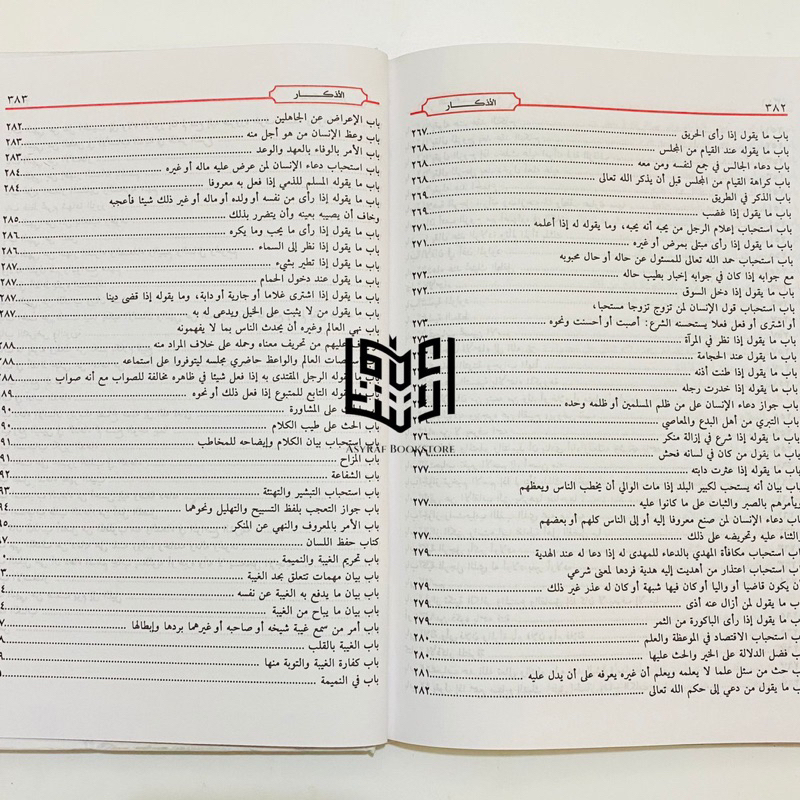 ٣٨٢
الأذكـــــار
باب ما يقول إذا رأى الحريق ٢٦٧
باب ما يقوله عند القيام من المجلس ٢٦٨
باب دعاء الجالس في جمع لنفسه ومن معه ٢٦٨
باب كراهة القيام من المجلس قبل أن يذكر الله تعالى ٢٦٨
باب الذكر في الطريق ٢٦٩
باب ما يقول إذا غضب ٢٦٩
باب استحباب إعلام الرجل من يحبه أنه يحبه، وما يقوله له إذا أعلمه ٢٧١
باب ما يقول إذا رأى مبتلى بمرض أو غيره ٢٧١
باب استحباب حمد الله تعالى للمسئول عن حاله أو حال محبوبه
مع جوابه إذا كان في جوابه إخبار بطيب حاله ٢٧٢
باب ما يقول إذا دخل السوق ٢٧٢
باب استحباب قول الإنسان لمن تزوج تزوجا مستحبا،
أو اشترى أو فعل فعلا يستحسنه الشرع: أصبت أو أحسنت ونحوه ٢٧٣
باب ما يقول إذا نظر في المرآة
باب ما يقول عند الحجامة
باب ما يقول إذا طنت أذنه
باب ما يقوله إذا خدرت رجله
باب جواز دعاء الإنسان على من ظلم المسلمين أو ظلمه وحده
باب التبري من أهل البدع والمعاصي
باب ما يقوله إذا شرع في إزالة منكر ٢٧٦
باب ما يقول من كان في لسانه فحش
باب ما يقوله إذا عثرت دابته ٢٧٧
باب بيان أنه يستحب لكبير البلد إذا مات الوالي أن يخطب الناس ويعظهم
ويأمرهم بالصبر والثبات على ما كانوا عليه ٢٧٧
باب دعاء الإنسان لمن صنع معروفا إليه أو إلى الناس كلهم أو بعضهم
والثناء عليه وتحريضه على ذلك ٢٧٧
باب استحباب مكافأة المهدي بالدعاء للمهدى له إذا دعا له عند الهدية ٢٧٩
باب استحباب اعتذار من أهديت إليه هدية فردها لمعنى شرعي
أن يكون قاضيا أو واليا أو كان فيها شبهة أو كان له عذر غير ذلك ٢٧٩
باب ما يقول لمن أزال عنه أذى ٢٧٩
باب ما يقول إذا رأى الباكورة من الثمر ٢٧٩
باب استحباب الاقتصاد في الموعظة والعلم ٢٨٠
باب فضل الدلالة على الخير والحث عليها ٢٨٠
باب حث من سئل علما لا يعلمه ويعلم أن غيره يعرفه على أن يدل عليه ٢٨١
باب ما يقول من دعي إلى حكم الله تعالى ٢٨٢
الأذكـــــار
٣٨٣
باب الإعراض عن الجاهلين ٢٨٢
باب وعظ الإنسان من هو أجل منه ٢٨٣
باب الأمر بالوفاء بالعهد والوعد ٢٨٣
باب استحباب دعاء الإنسان لمن عرض عليه ماله أو غيره ٢٨٤
باب ما يقوله المسلم للذمي إذا فعل به معروفا ٢٨٤
باب ما يقوله إذا رأى من نفسه أو ولده أو ماله أو غير ذلك شيئا فأعجبه
وخاف أن يصيبه بعينه وأن يتضرر بذلك ٢٨٥
باب ما يقول إذا رأى ما يحب وما يكره ٢٨٦
باب ما يقول إذا نظر إلى السماء ٢٨٦
باب ما يقول إذا تطير بشيء ٢٨٧
باب ما يقول عند دخول الحمام ٢٨٧
باب ما يقول إذا اشترى غلاما أو جارية أو دابة، وما يقوله إذا قضى دينا ٢٨٧
باب ما يقول من لا يثبت على الخيل ويدعى له به ٢٨٧
باب نهي العالم وغيره أن يحدث الناس بما لا يفهمونه
عليهم من تحريف معناه وحمله على خلاف المراد منه ٢٨٨
العالم والواعظ حاضري مجلسه ليتوفروا على استماعه ٢٨٨
باب ما يقوله الرجل المقتدى به إذا فعل شيئا في ظاهره مخالفة للصواب مع أنه صواب ٨٨
يقوله التابع للمتبوع إذا فعل ذلك أو نحوه ٨٩
على المشاورة ٩٠
باب الحث على طيب الكلام ٩٠
باب استحباب بيان الكلام وإيضاحه للمخاطب ٩١
باب المزاح ٩١
باب الشفاعة ٩٢
باب استحباب التبشير والتهنئة ٩٣
باب جواز التعجب بلفظ التسبيح والتهليل ونحوهما ٩٤
باب الأمر بالمعروف والنهي عن المنكر ٩٥
كتاب حفظ اللسان ٩٧
باب تحريم الغيبة والنميمة ٠
باب بيان مهمات تتعلق بحد الغيبة ٣
باب بيان ما يدفع به الغيبة عن نفسه ٤
باب بيان ما يباح من الغيبة ٤
باب أمر من سمع غيبة شيخه أو صاحبه أو غيرهما بردها وإبطالها ٧
باب الغيبة بالقلب ٨
باب كفارة الغيبة والتوبة منها ٩
باب في النميمة
ASYRAF BOOKSTORE